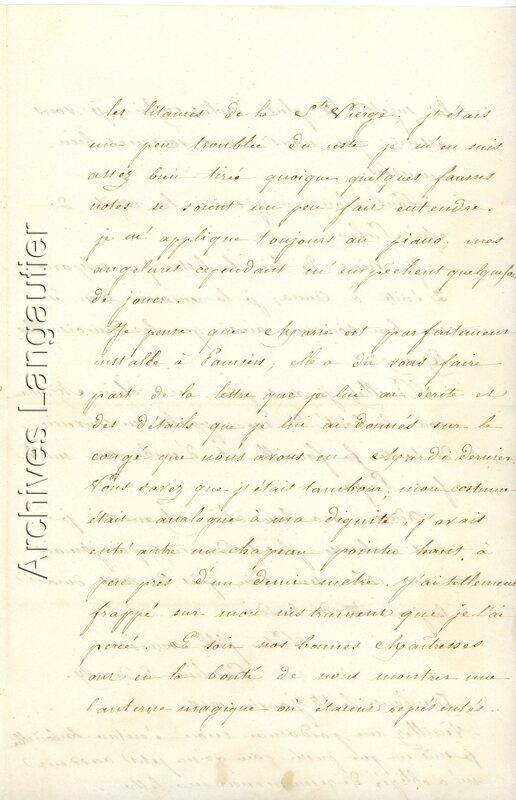 les litanies de la Ste Vierge. j'étais
un peu troublée du reste je m'en suis
assez bien tirée quoique quelques fausses
notes se soient un peu fait entendre.
je m'applique toujours au piano, mes
angelures cependant m'empêchent quelquefois
de jouer.
Je pense que Marie est parfaitement
installée à Pamiers, elle a dû vous faire
part de la lettre que je lui ai écrite et
des détails que je lui ai donnés sur le
congé que nous avons eu Mardi dernier.
Vous savez que j'étais tambour, mon costume
était analogue à ma dignité j'avais
entr'autre un chapeau pointu haut à
peu près d'un demi mètre. J'ai tellement
frappé sur mon instrument que je l'ai
percé. Le soir nos bonnes Maîtresses
ont eu la bonté de nous montrer une
lanterne magique où étaient représentés.
Archives Langautier